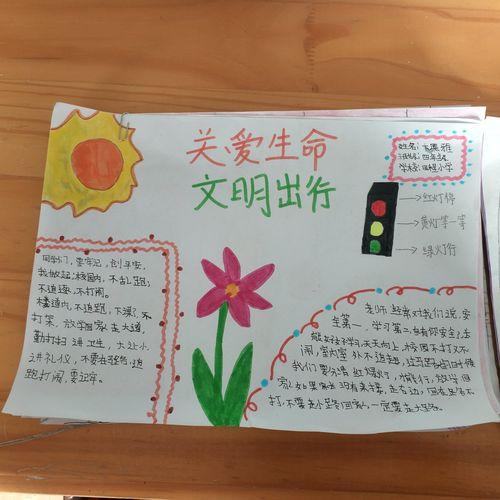 关爱生命
文明出行
姓名：雅
班级：四年级
学校：小学
红灯停
黄灯等一等
绿灯行
同学们，要牢记，创平安，
我做起；校园内，不乱跑，
不追逐，不打闹。
楼道内，不追跑，不
打架，放学回家走大道，
勤打扫讲卫生，大让小
讲礼仪，不要在追
跑打闹，要
老师经常对我们说，安
全第一，学习第二，有了安全，才
能好好学习天天向上，校园不打又不
闹，室内室外不追赶，过马路的时候
我们要分清红绿灯，才能行，放学回
家如果家长没有来接，走右边，
打，不要走小路回家，一定要走大路。